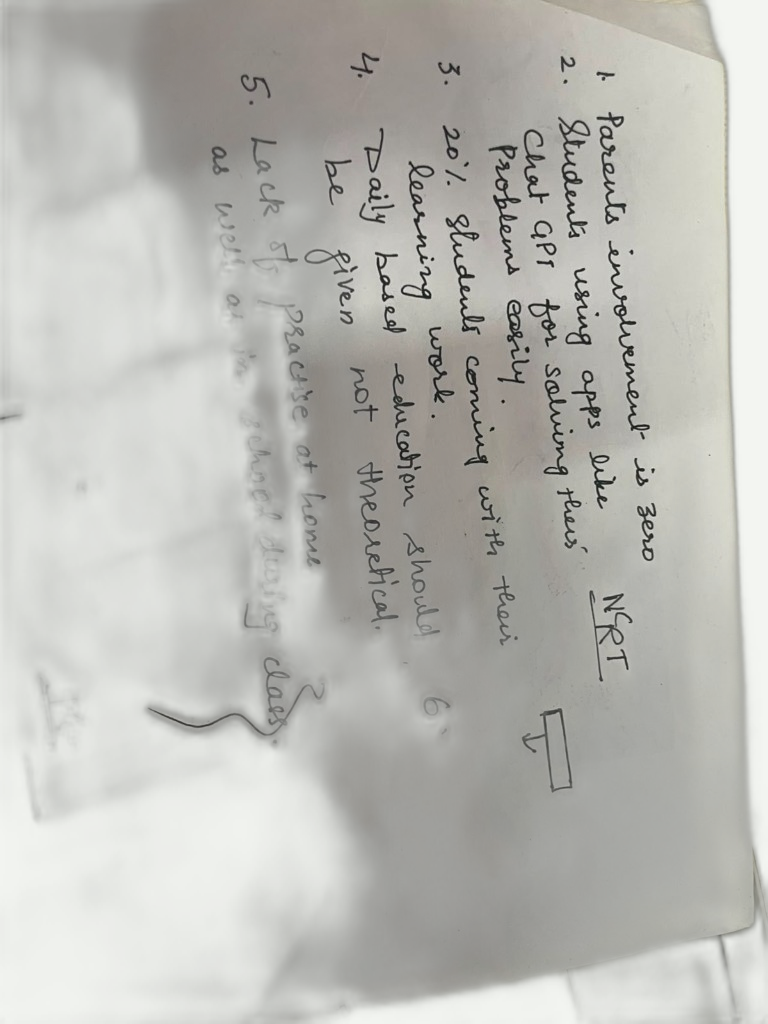 1. Parents involvement is zero
2. Students using apps like
Chat GPT for solving their
Problems easily.
3. 20% students coming with their
learning work.
4. Daily based education should
be given not theoretical.
5. Lack of practise at home
as well as in school during class.
6.